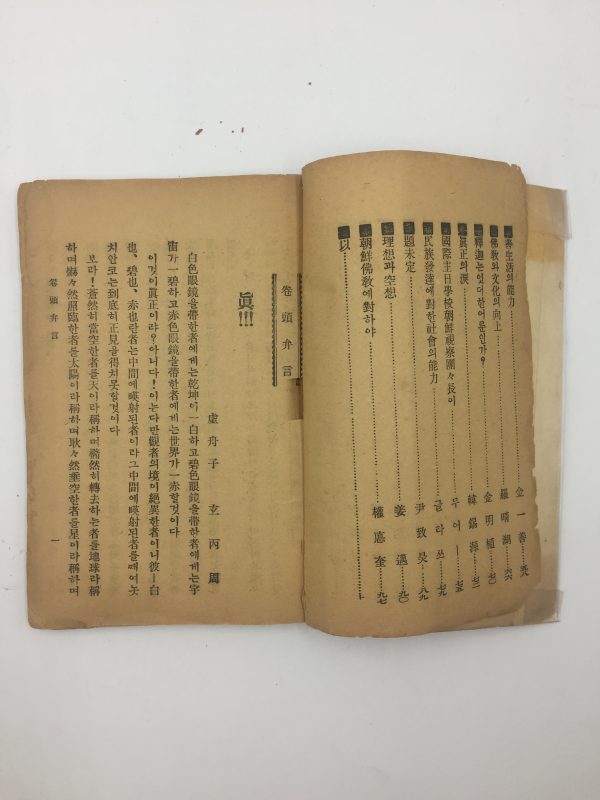 善生活의能力……金一善…六八
佛敎와文化의向上……羅晴湖…六六
釋迦는엇더한어룬인가?……金明植…七〇
眞正의淚……韓錫源…七二
國際主日學校朝鮮視察團々長이……무어ー…七五
民族發達에對한社會의能力……글라쓰…七九
題未定……尹致昊…八九
理想과空想……姜邁…九〇
朝鮮佛敎에對하야……權悳奎…九七
以上
卷頭弁言
眞!!!
虛舟子 玄丙周
白色眼鏡을帶한者에게는乾坤이一白하고碧色眼鏡을帶하者에게는宇
宙가一碧하고赤色眼鏡을帶한者에게는世界가一赤할것이다
이것이眞正이랴?아니다!이는다만觀者의境이絶異한者이니彼ー白
也、碧也、赤也란者는中間에暎射된者이라그中間에暎射된者를때여놋
치안코는到底히正見을得치못할것이다
보라!蒼然히當空한者를天이라稱하며 히轉去하는者를地球라稱
하며爀々然照臨한者를太陽이라稱하며耿々然垂空한者를星이라稱하며
卷頭弁言
一